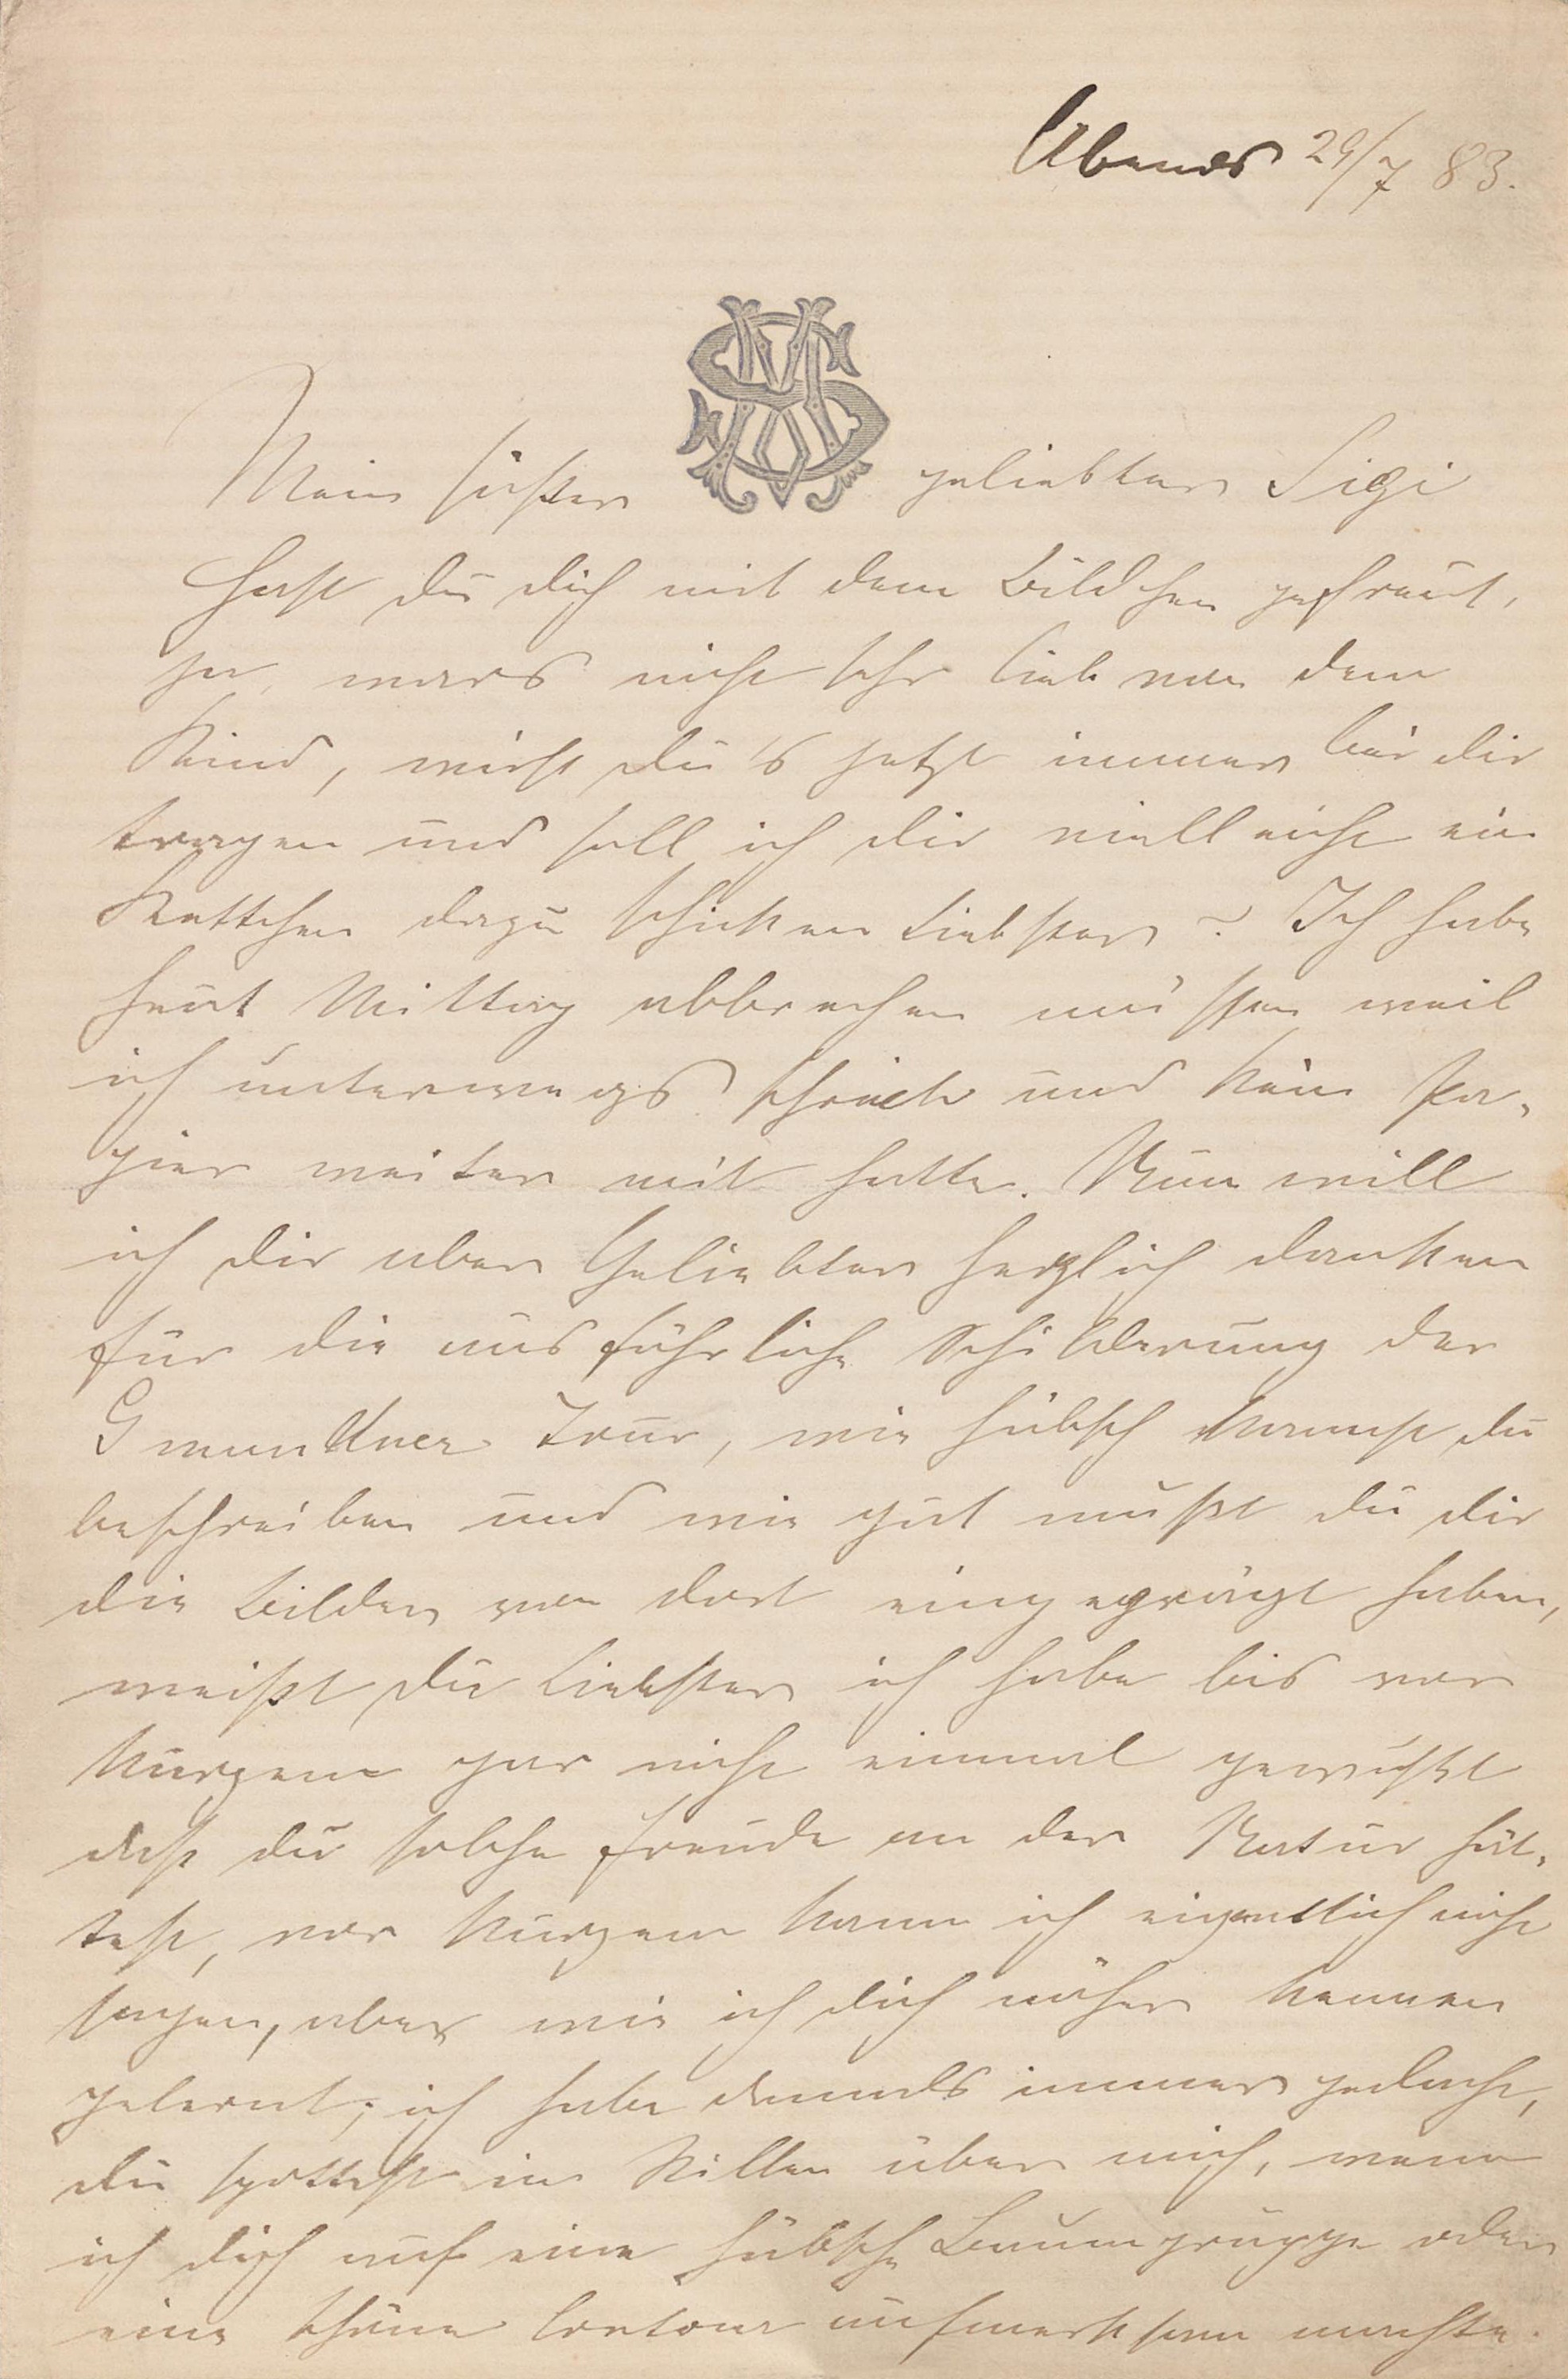 Abends 29/7 83.
Mein süßer geliebter Sigi
Hast du dich mit dem Bildchen gefreut,
ja, wars nicht sehr lieb von dem
Kind, wirst du's jetzt immer bei dir
tragen und soll ich dir vielleicht ein
Kettchen dazu schicken Liebster? Ich habe
heut Mittag abbrechen müssen weil
ich unterwegs schrieb und kein Pa-
pier weiter mit hatte. Nun will
ich dir aber Geliebter herzlich danken
für die ausführliche Schilderung der
Gmundner Tour, wie hübsch kannst du
beschreiben und wie gut mußt du dir
die Bilder von dort eingeprägt haben,
weißt du Liebster ich habe bis vor
Kurzem gar nicht einmal gewußt
daß du solche Freude an der Natur hät-
test, vor Kurzem kann ich eigentlich nicht
sagen, aber wie ich dich näher kennen
gelernt; ich habe damals immer gedacht,
du spottest im Stillen über mich, wenn
ich dich auf eine hübsche Baumgruppe oder
eine schöne Contour aufmerksam machte.